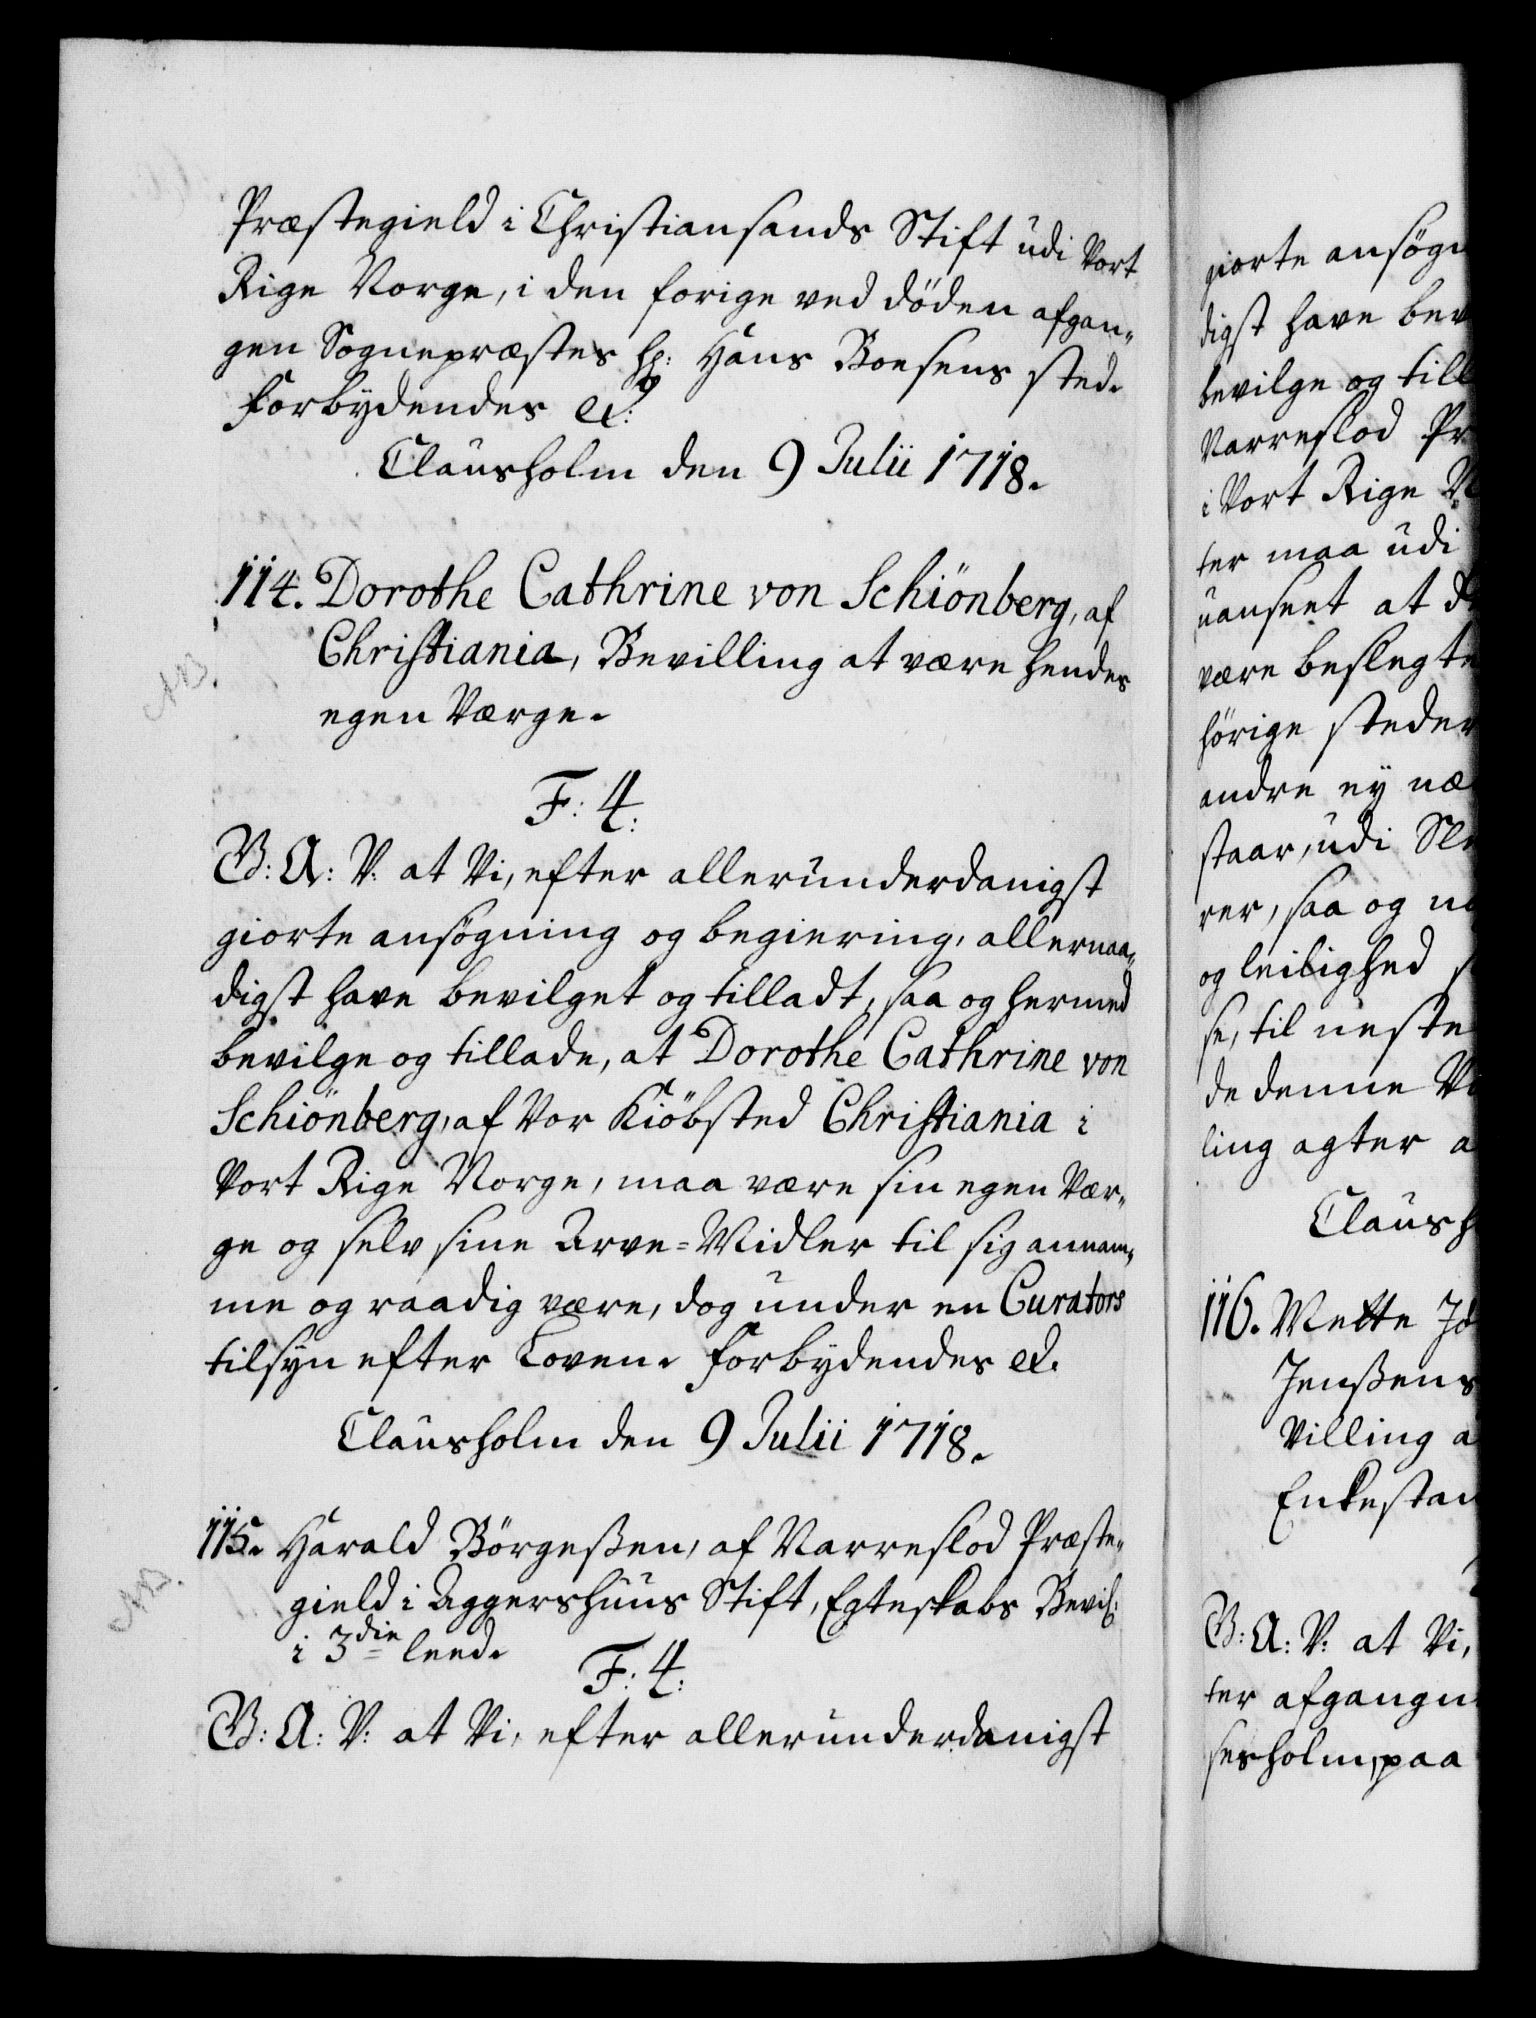 Præstegield i Christiansands Stift udi Vort
Rige Norge, i den forige ved døden afgan-
gen Sognepræstes Hr: Hans Boesens sted.
Forbydendes etc:
Clausholm den 9 Julii 1718.
114. Dorothe Cathrine von Schiönberg, af
Christiania, Bevilling at være hendes
egen Værge.
NB.
F: 4:
G: A: V: at Vi, efter allerunderdanigst
giorte ansøgning og begiering, allernaa-
digst have bevilget og tilladt, saa og hermed
bevilge og tillade, at Dorothe Cathrine von
Schiönberg, af Vor Kiöbsted Christiania i
Vort Rige Norge, maa være sin egen Vær-
ge og selv sine Arve-Midler til sig annam-
me og raadig være, dog under en Curators
tilsyn efter Loven. Forbydendes etc.
Clausholm den 9 Julii 1718.
115. Harald Börgeßen, af Narreslod Præste-
gield i Aggershuus Stift, Egteskabs Bevil:
i 3die leed.
NB.
F: 4:
G: A: V: at Vi, efter allerunderdanigst
giorte ansøgn
digst have bev
bevilge og till
Narreslod Pr
i Vort Rige N
ter maa udi
uanseet at d
være beslegte
hörige steder
andre ey næ
staar, udi Sle
rer, saa og
og leilighed s
se, til neste
de denne
ling agter a
Claush
116. Mette
Jenßens
Villing a
Enkestan
G: A: V: at Vi,
ter afgangn
sesholm, paa